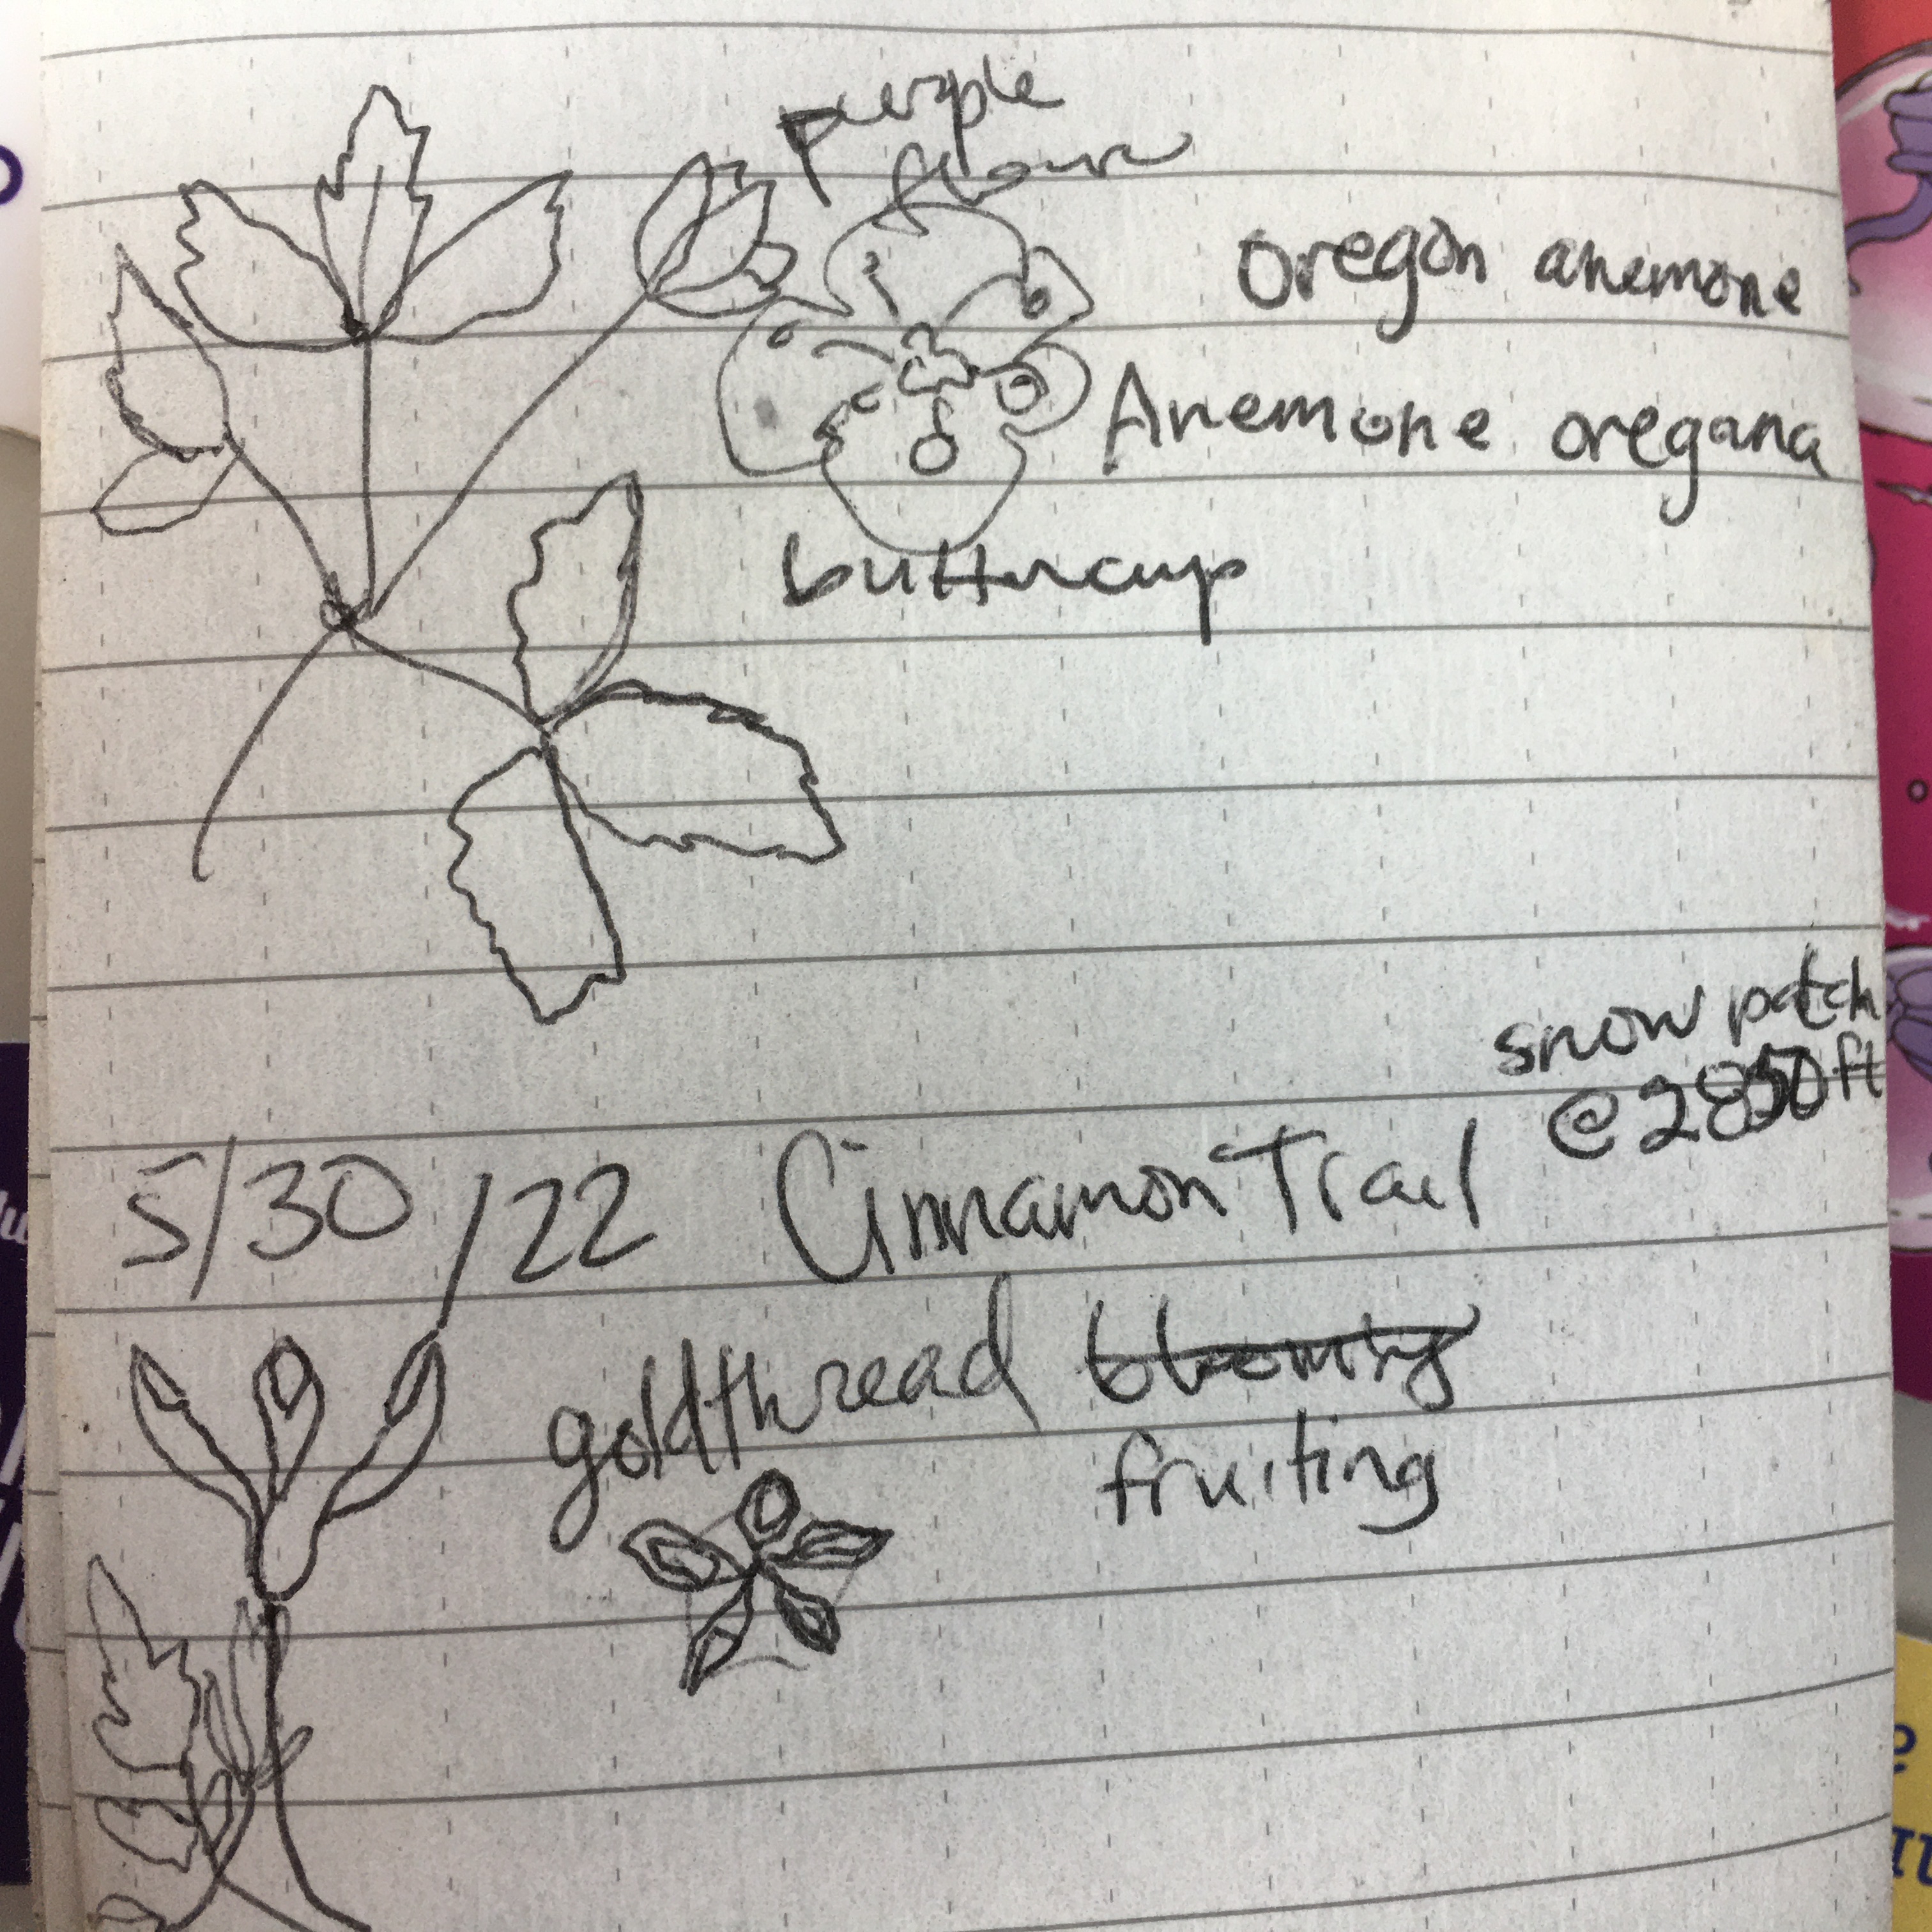 purple
flower
Oregon anemone
Anemone oregana
buttercup
snow patch
@ 2850 ft
5/30/22 Cinnamon Trail
goldthread blooming
fruiting